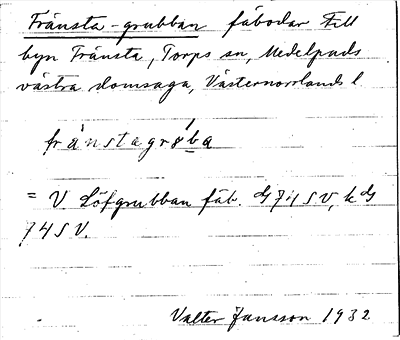 Fränsta-grubban fäbodar till
byn Fränsta, Torps sn, Medelpads
västra domsaga, Västernorrlands l
= V Löfgrubban fäb. G 741 SV, k dG
741 SV.
Valter Jansson 1932